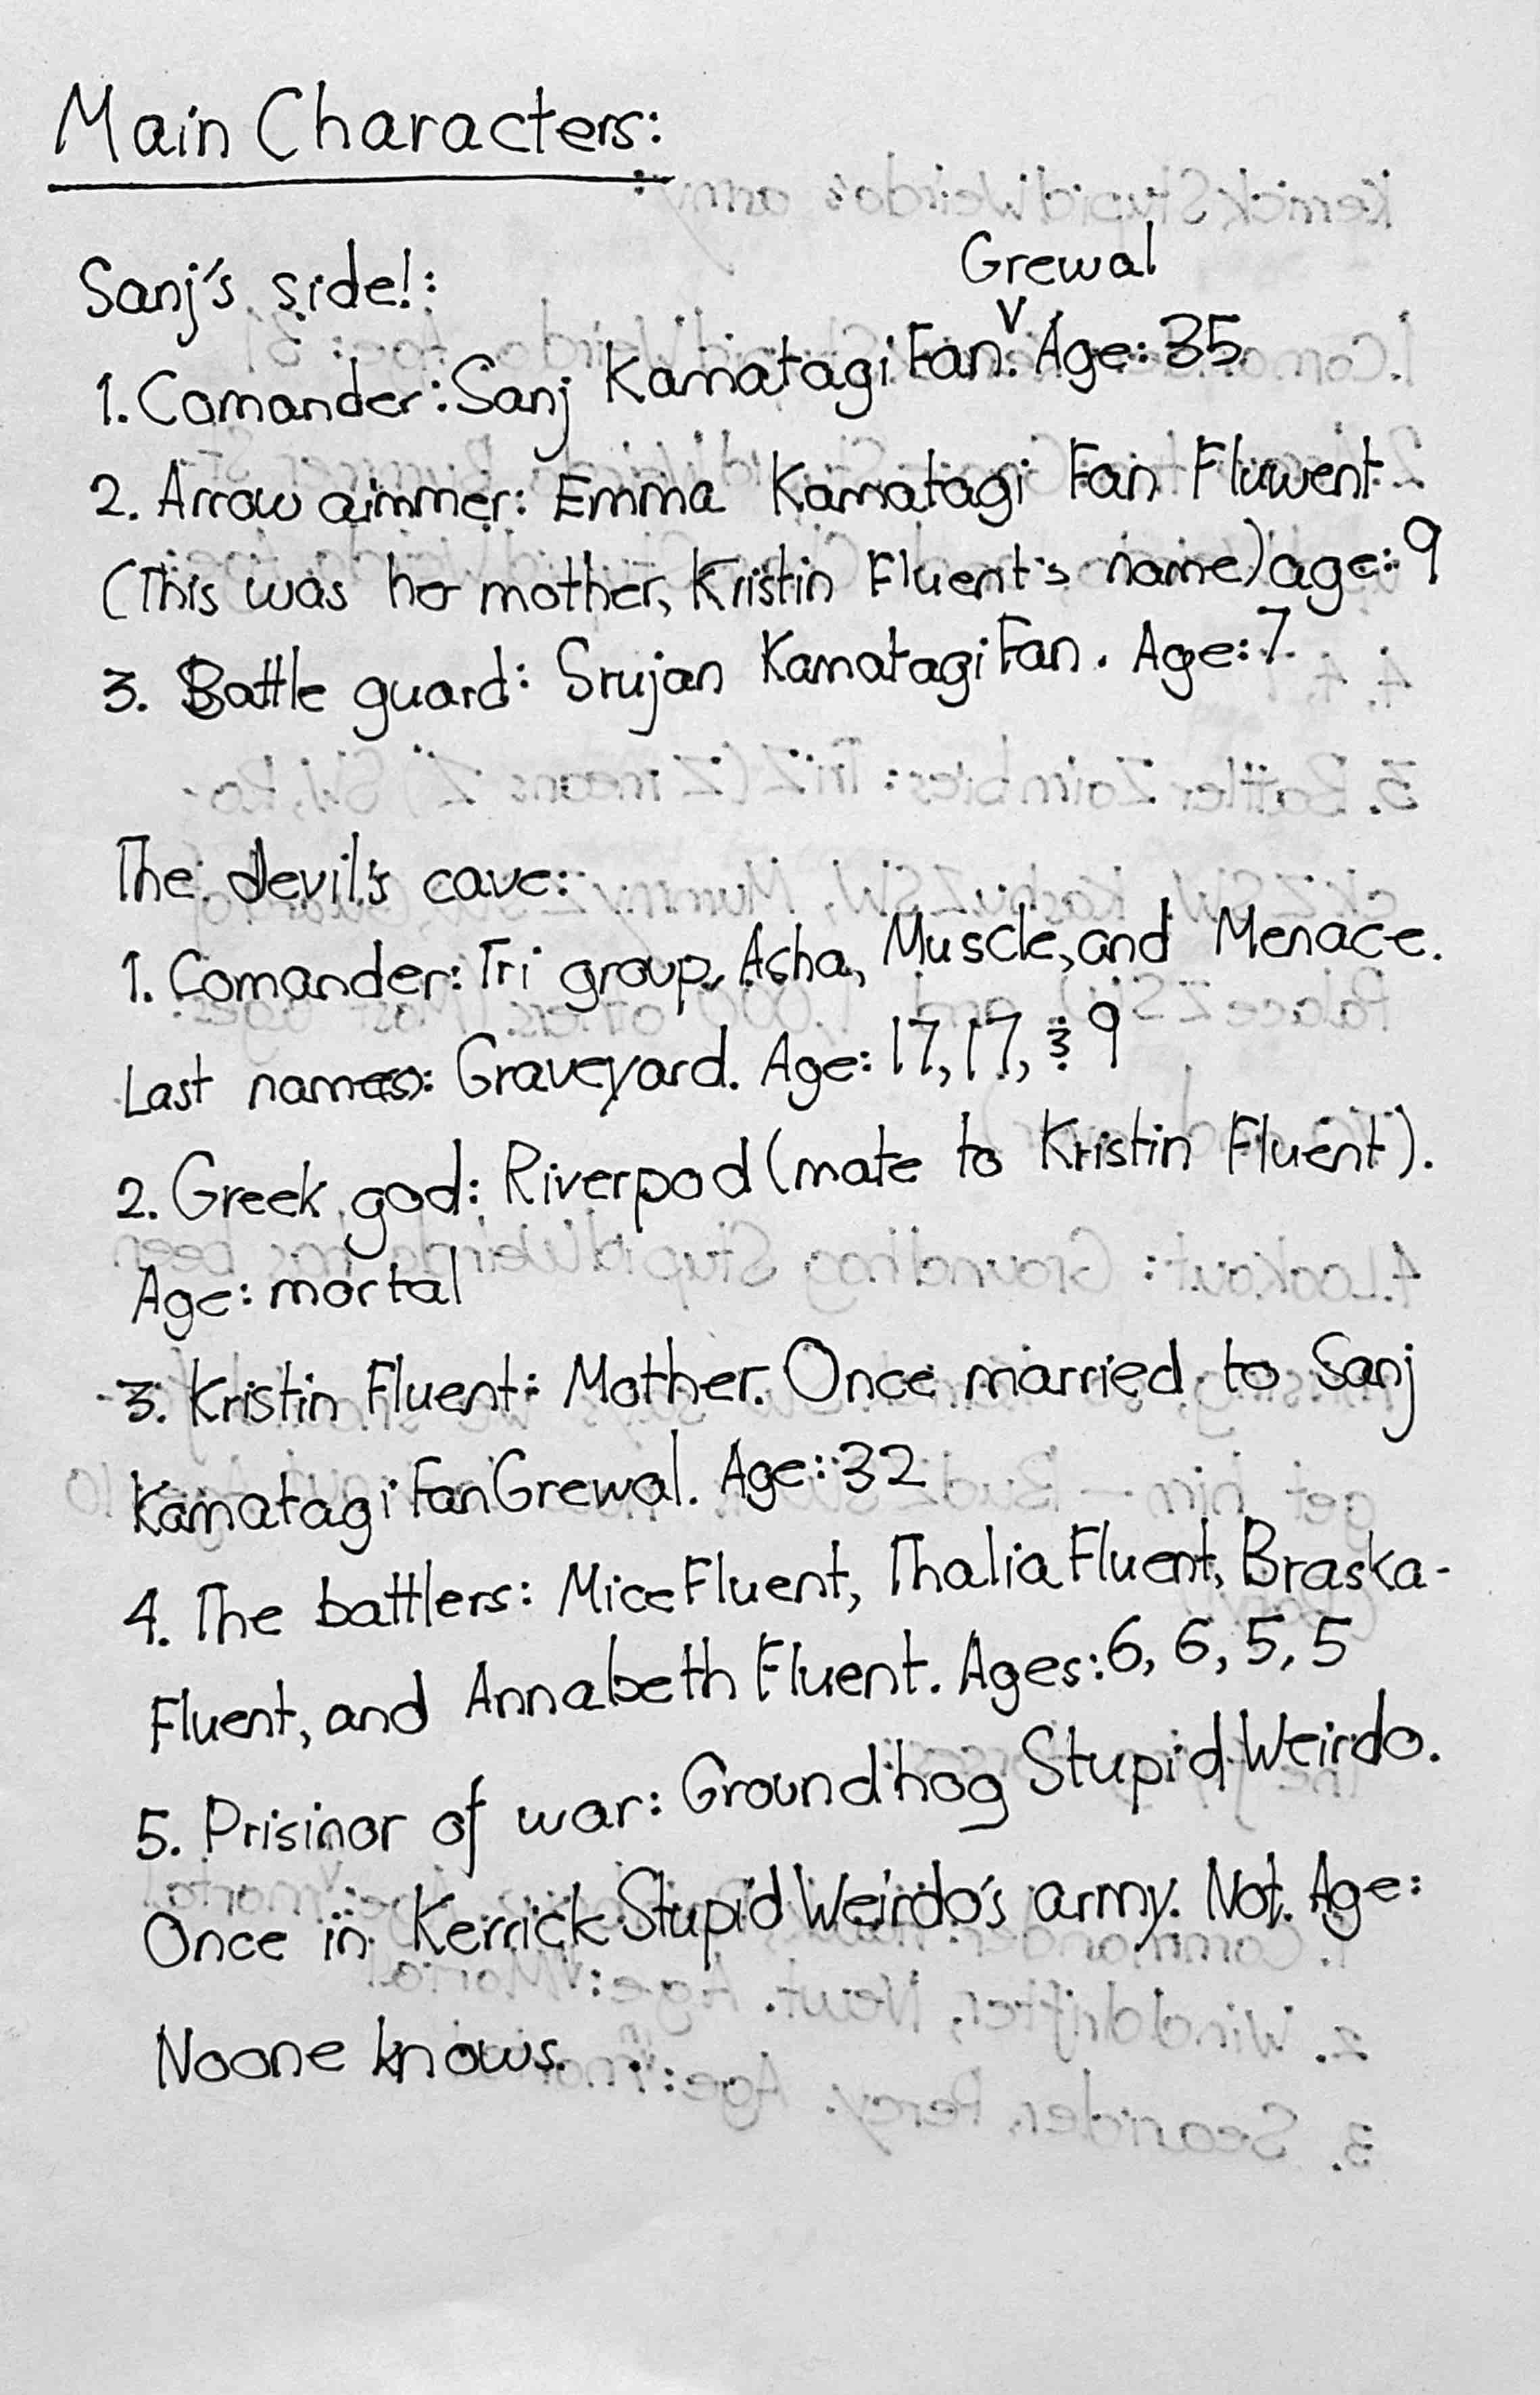 Main Characters:
Sanj's side!:
Grewal
1. Comander: Sanj Kamatagi Fan. Age: 35
2. Arrow aimmer: Emma Kamatagi Fan Fluwent
(This was her mother, Kristin Fluent's name) age: 9
3. Battle guard: Srujan Kamatagi Fan. Age: 7
The devil's cave:
1. Comander: Tri group, Asha, Muscle, and Menace.
Last names: Graveyard. Age: 17, 17, & 9
2. Greek god: Riverpod (mate to Kristin Fluent).
Age: mortal
3. Kristin Fluent: Mother. Once married to Sanj
Kamatagi Fan Grewal. Age: 32
4. The battlers: Mice Fluent, Thalia Fluent, Braska-
Fluent, and Annabeth Fluent. Ages: 6, 6, 5, 5
5. Prisinor of war: Groundhog Stupid Weirdo.
Once in Kerrick Stupid Weirdo's army. Not. Age:
Noone knows.